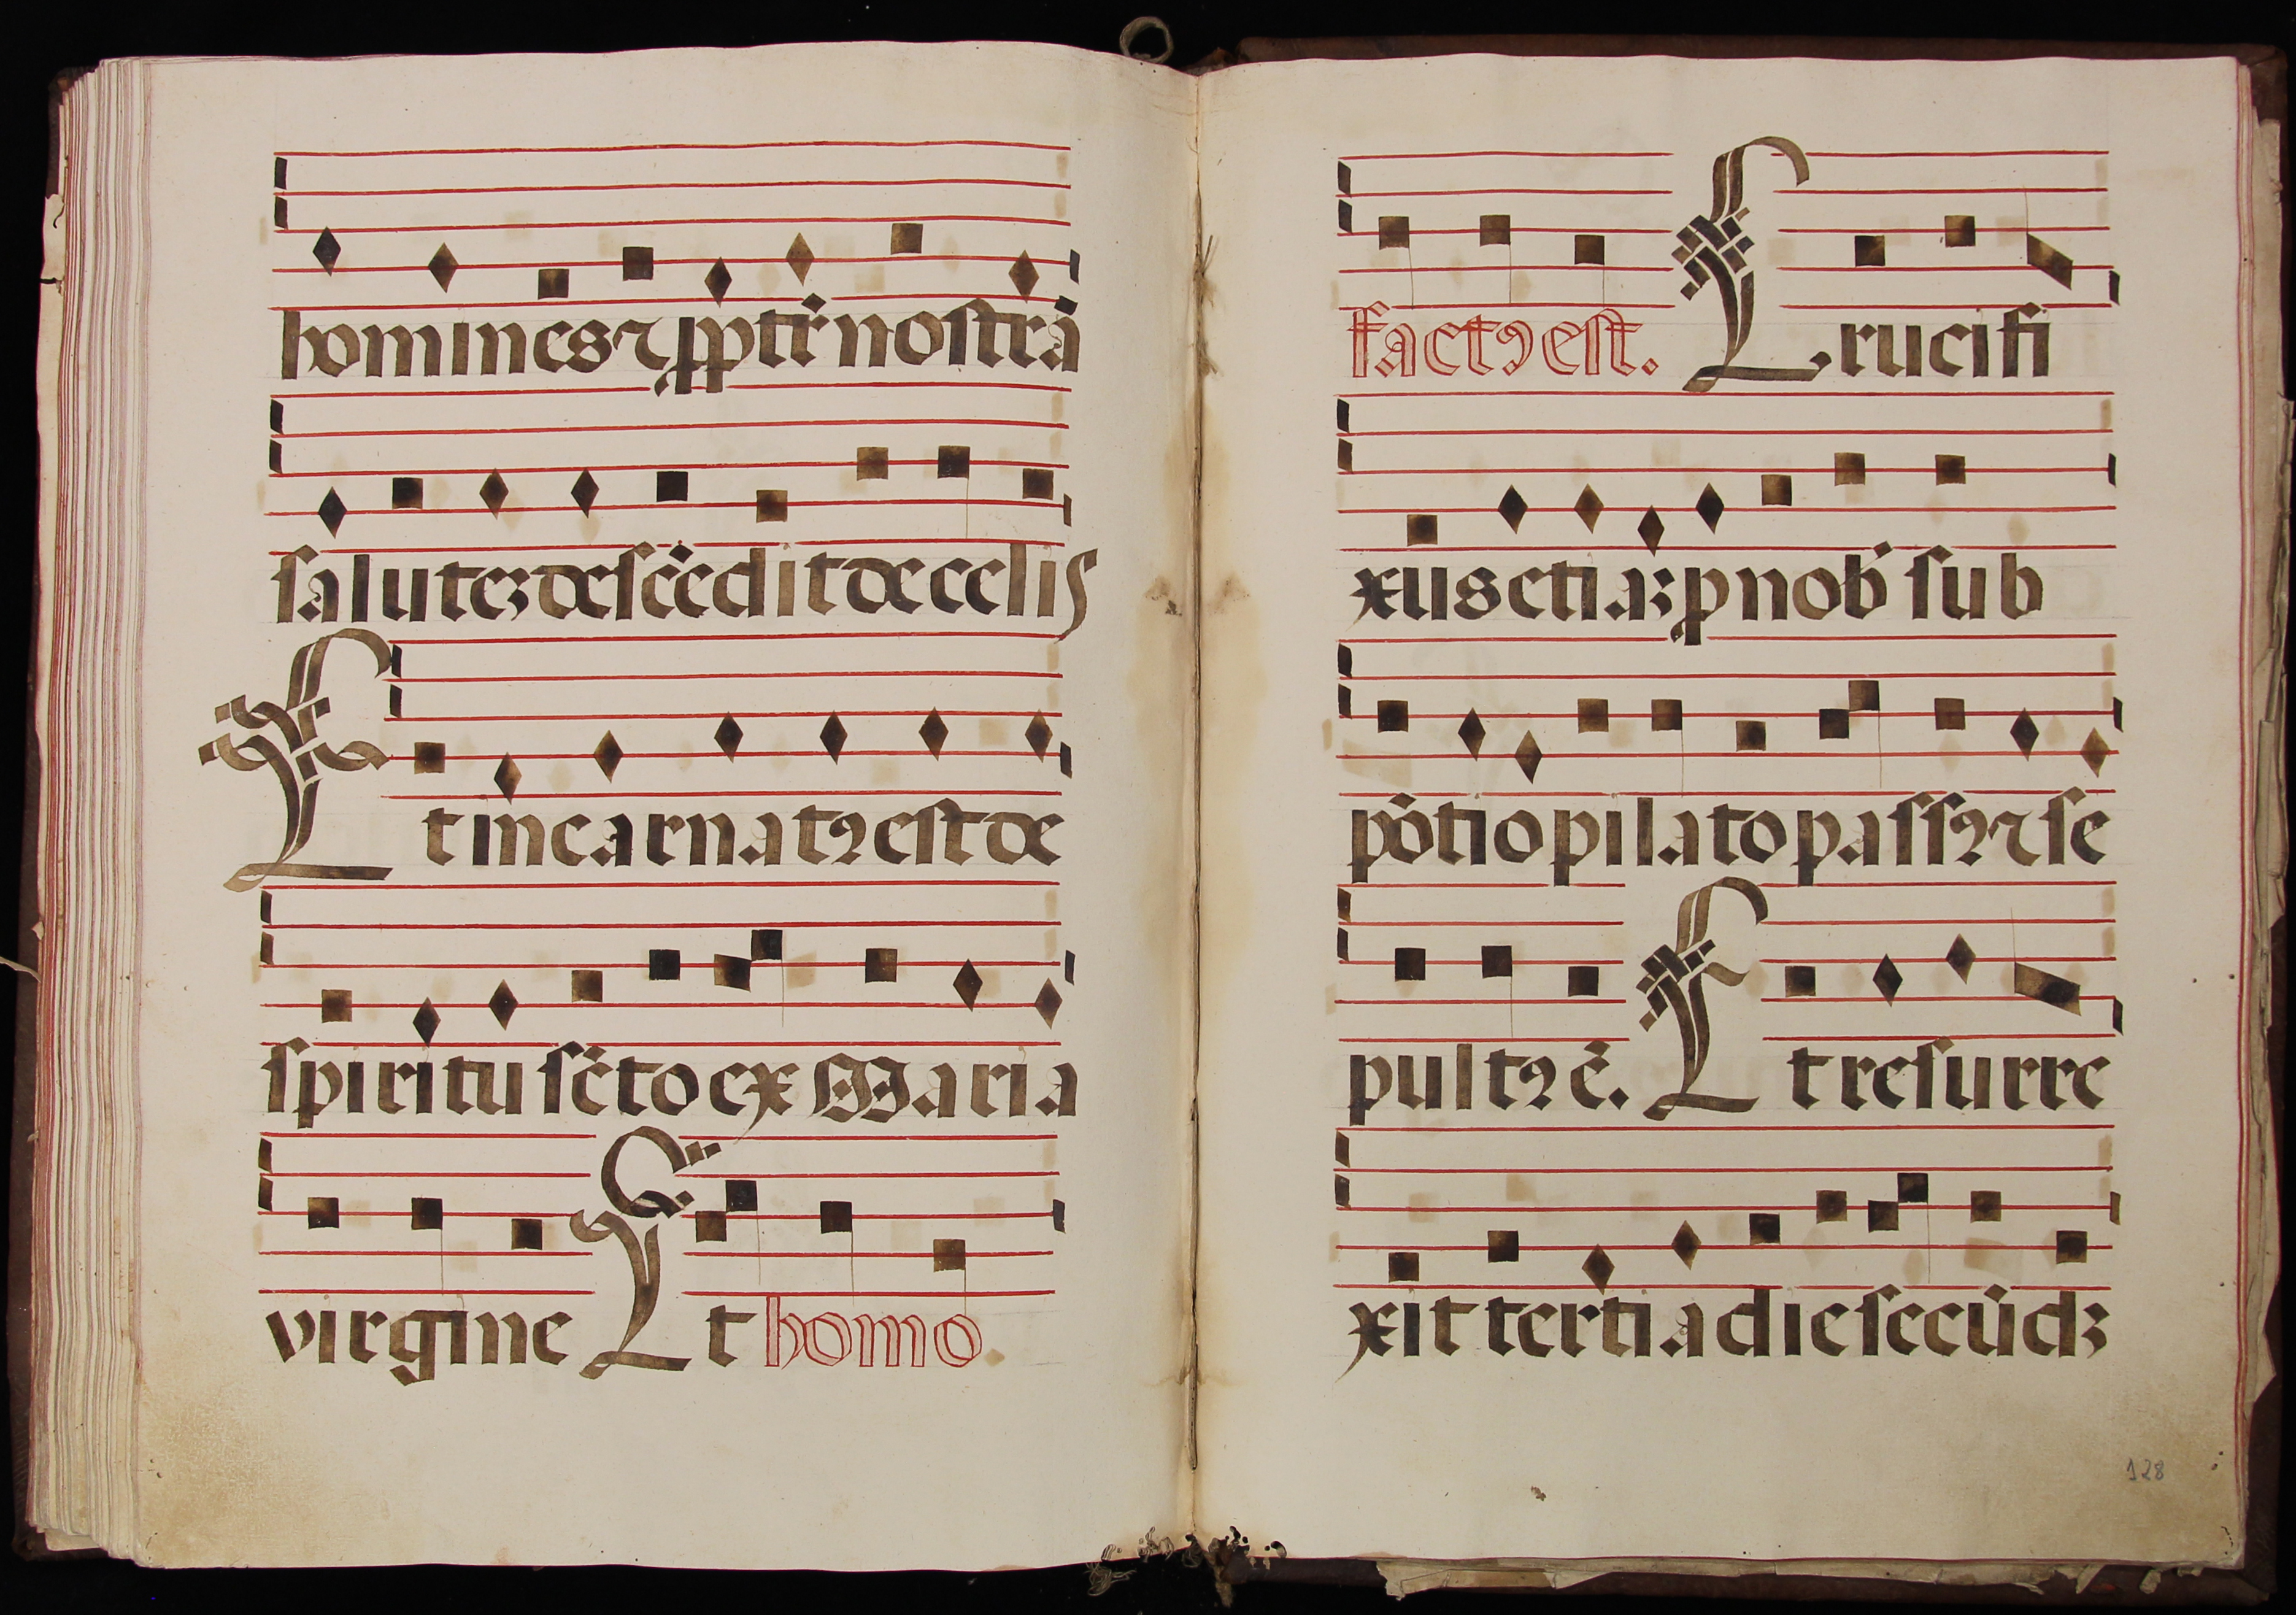 homines ⁊ ꝓpt̃ nostrã
saluteꝫ descẽdit de celis
Et incarnatꝯ est de
spiritu sc̃to ex Maria
virgine Et homo
factꝯ est. Crucifi
xus etiaꝫ ꝓ nob̃ sub
põtio pilato passꝯ ⁊ se
pultꝯ ẽ. Et resurre
xit tertia die secũdꝫ
128